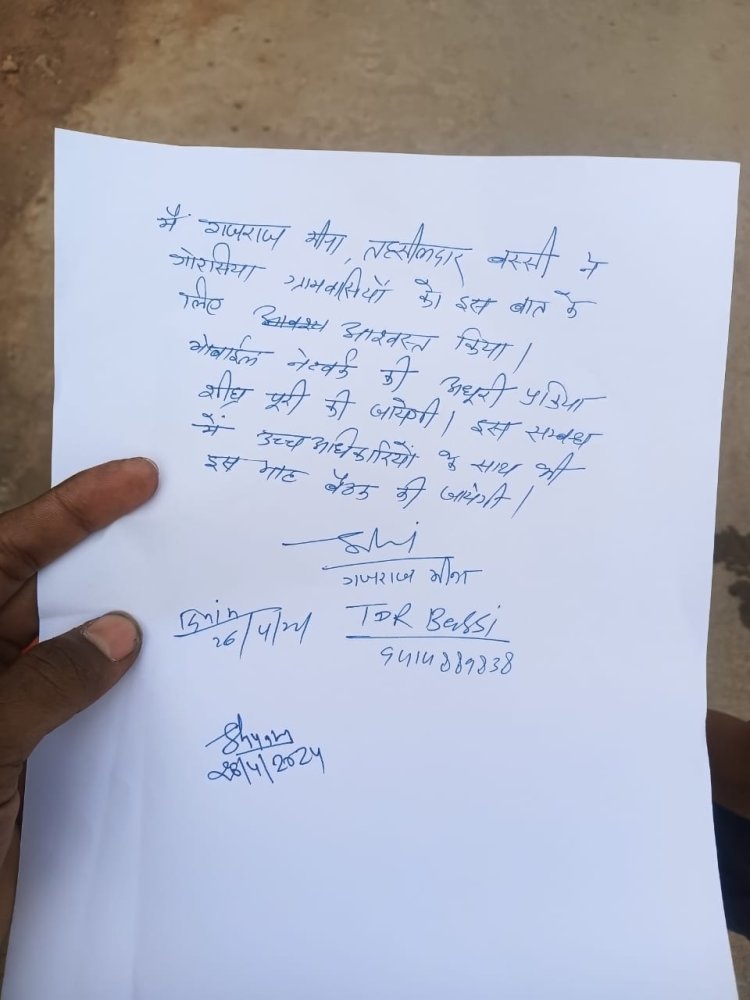 मैं गजराज मीना, तहसीलदार बस्सी ने
गोरसिया ग्रामवासियों को इस बात के
लिए आश्वस्त किया।
मोबाईल नेटवर्क की अधूरी प्रक्रिया
शीघ्र पूरी की जायेगी। इस सम्बन्ध
में उच्च अधिकारियों के साथ भी
इस माह बैठक की जायेगी।
गजराज मीना
26/4/24
TDR Bassi
9414889838
Shyam
28/4/2024